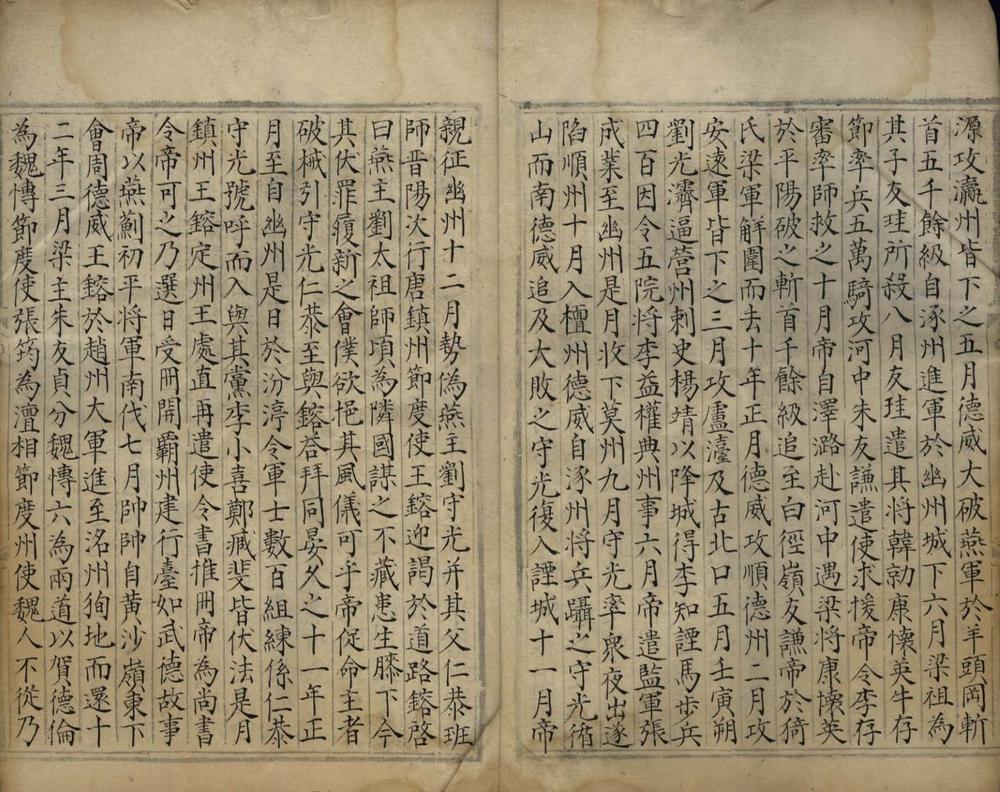 源攻瀛州皆下之五月德威大破燕軍於羊頭岡斬
首五千餘級自涿州進軍於幽州城下六月梁祖為
其子友珪所殺八月友珪遣其將韓勍康懷英牛存
節率兵五萬騎攻河中朱友謙遣使求援帝令李存
審率師救之十月帝自澤潞赴河中遇梁將康懷英
於平陽破之斬首千餘級追至白徑嶺友謙帝於猗
氏梁軍解圍而去十年正月德威攻順德州二月攻
安遠軍皆下之三月攻盧濅及古北口五月壬寅朔
劉光濬逼營州刺史楊靖以降城得李知謹馬步兵
四百因令五院將李益權典州事六月帝遣監軍張
成業至幽州是月收下莫州九月守光率衆夜出遂
陷順州十月入檀州德威自涿州將兵躡之守光循
山而南德威追及大敗之守光復入謹城十一月帝
親征幽州十二月勢偽燕主劉守光并其父仁恭班
師晋陽次行唐鎮州節度使王鎔迎謁於道路鎔啓
曰燕主劉太祖師頃為隣國謀之不藏患生膝下今
其伏罪𢕄新之會僕欲挹其風儀可乎帝促命主者
破械引守光仁恭至與鎔荅拜同宴久之十一年正
月至自幽州是日於汾渟令軍士數百組練係仁恭
守光號呼而入與其黨李小喜鄭臧斐皆伏法是月
鎮州王鎔定州王處直再遣使令書推冊帝為尚書
令帝可之乃選日受冊開霸州建行臺如武德故事
帝以燕薊初平將軍南伐七月帥帥自黄沙嶺東下
會周德威王鎔於趙州大軍進至洺州狥地而還十
二年三月梁主朱友貞分魏慱六為兩道以賀德倫
為魏慱節度使張筠為澶相節度州使魏人不從乃